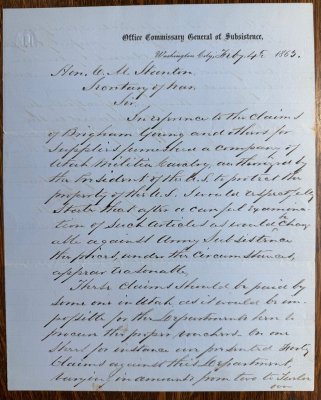 Office Commissary General of Subsistence,
Washington City, Feby 4th 1863.
Hon. E. M. Stanton
Secretary of War
Sir
In reference to the claims
of Brigham Young and others for
Supplies furnished a company of
Utah Militia Cavalry, authorized by
the President of the U.S. to protect the
property of the U.S. I would respectfully
State that after a careful examina
tion of Such articles as would be charge
able against Army Subsistence
the prices, under the circumstances,
appear reasonable.
These claims should be paid by
some one in Utah as it would be im-
possible for the Departments here to
procure the proper vouchers. On one
Sheet for instance are presented Forty
Claims against this Department,
varying in amounts from two to